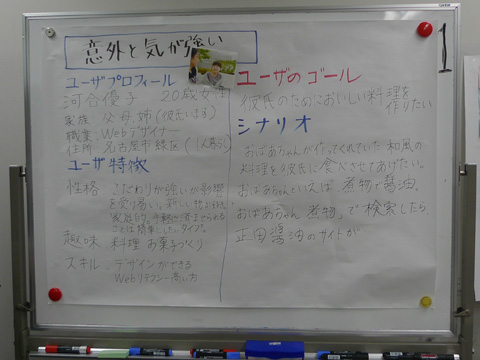 意外と気が強い
ユーザプロフィール
河合優子 20歳女性
家族 父母姉(彼氏いる)
職業 Webデザイナー
住所 名古屋市緑区(1人暮らし)
ユーザ特徴
性格 こだわりが強いが影響
を受け易い。新しい
家庭的。手軽に済ませられる
ことは簡単にしたいタイプ。
趣味 料理 お菓子づくり
スキル デザインができる
Webリテラシー高し方
ユーザのゴール
彼氏のためにおいしい料理を
作りたい
シナリオ
おばあちゃんが作ってくれていた和風の
料理を彼氏に食べさせてあげたい。
おばあちゃんといえば煮物で醤油。
おばあちゃん 煮物」で検索したら
正田醤油のサイトが
1